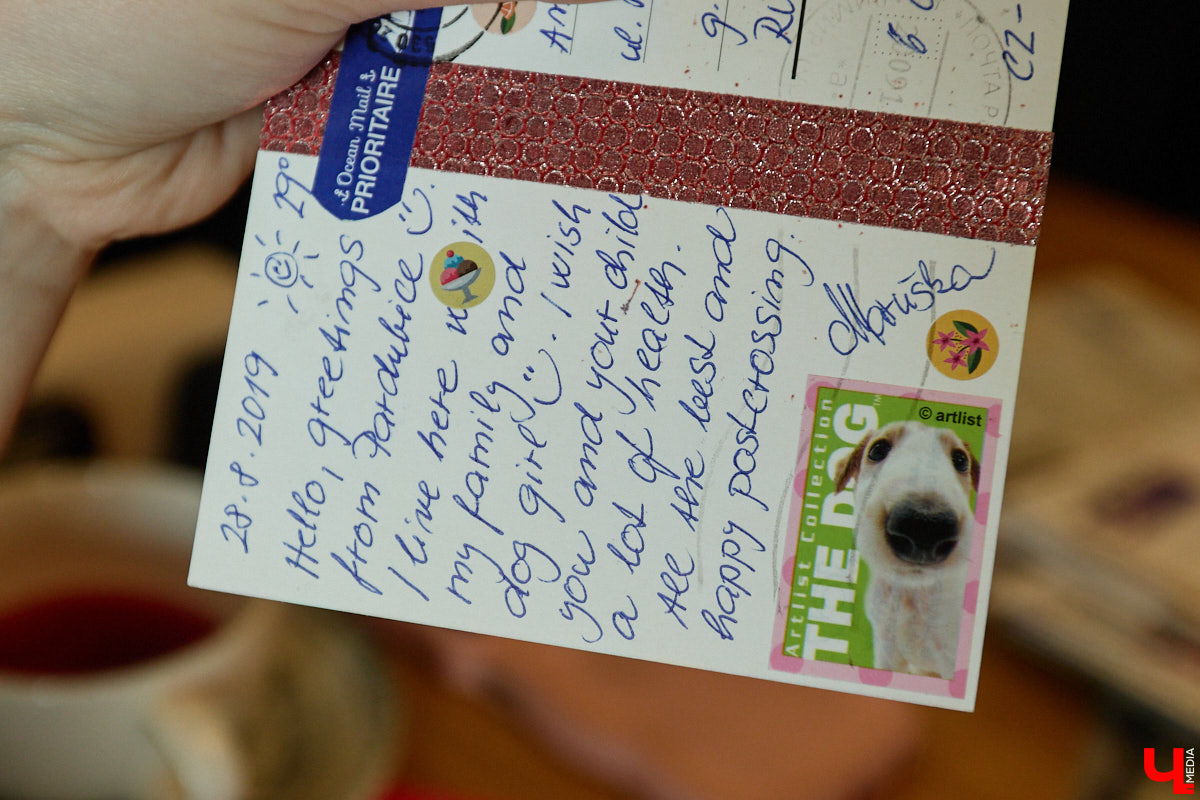 Ocean Mail
PRIORITAIRE
28.8.2019 29°
Hello, greetings
from Pardubice
I live here with
my family and
dog girl. I wish
you and your child
a lot of health.
All the best and
happy postcrossing.
Artlist Collection
THE DOG™
© artlist
CZ-
Ч
MEDIA